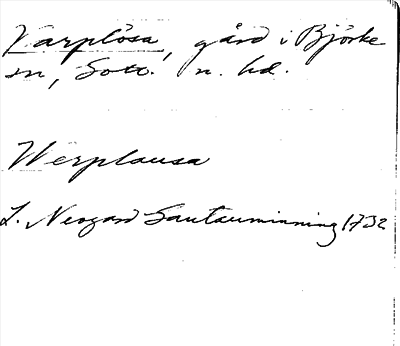 Varplösa, gård i Björke
sn, Gotl. n. hd.
Werplausa
L. Neogard Gautauminning 1732